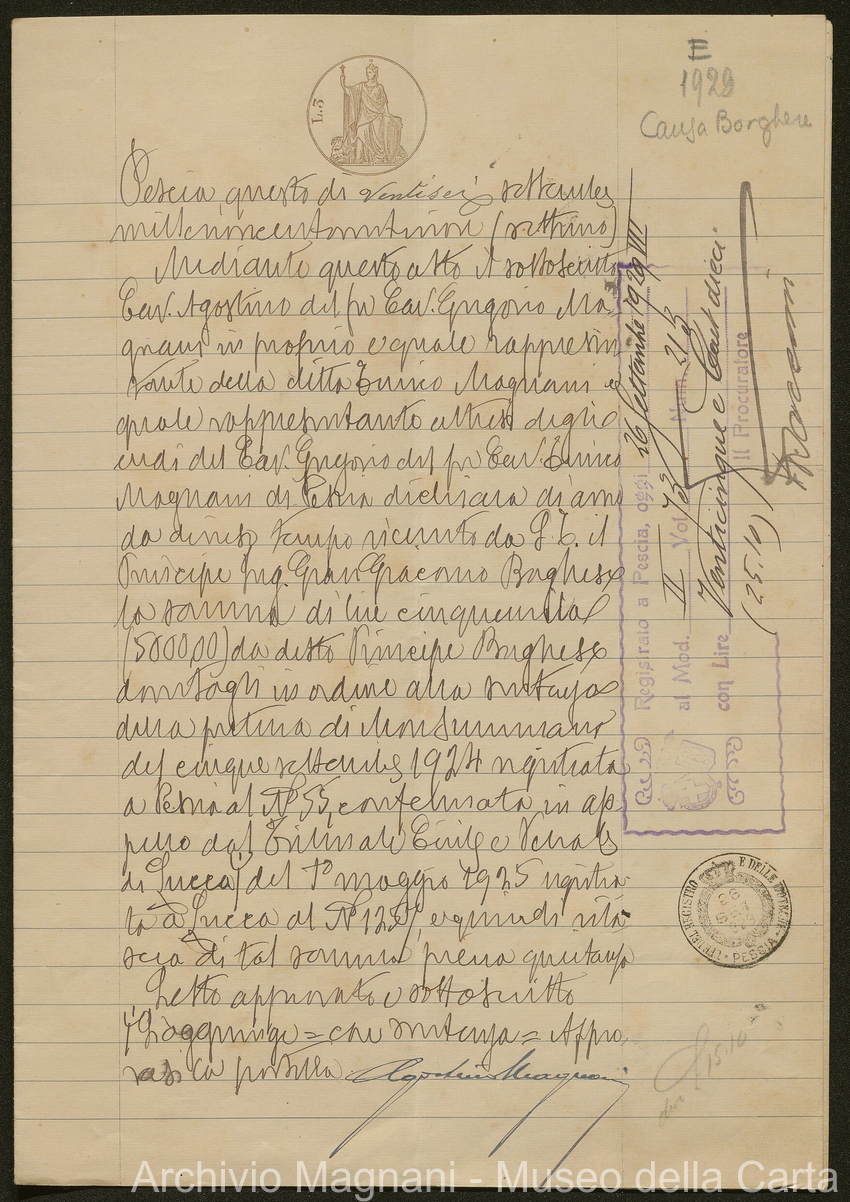 E
1929
Causa Borghese
L.3
Pescia, questo dì ventisei settembre
millenovecentoventinove (settimo)
Mediante questo atto il sottoscritto
Cav. Agostino del fu Cav. Gregorio Ma-
gnani in proprio e quale rappresen
tante della ditta Enrico Magnani e
quale rappresentante altresì degli e
redi del Cav. Gregorio del fu Cav. Enrico
Magnani di Pescia dichiara di aver
da diverso tempo ricevuto da S. E. il
Principe Ing. Gian Giacomo Borghese
la somma di lire cinquemila
(5000,00) da detto Principe Borghese
dovutagli in ordine alla sentenza
della pretura di Monsummano
del cinque settembre 1924 registrata
a Pescia al N° 55, confermata in ap
pello dal Tribunale Civile e Penale
di Lucca del 1° maggio 1925 registra-
ta a Lucca al N° 1257, e quindi rila-
scia di tal somma piena quietanza
Letto approvato e sottoscritto
Si aggiunge = con sentenza = Appro-
vasi la postilla Agostino Magnani
Registrato a Pescia, oggi 26 Settembre 1929 VII
al Mod. II Vol 73 Num. 313
con Lire Venticinque e Cent. dieci.
(25.10)
Il Procuratore
UFF. DEL REGISTRO E DELLE IPOTECHE
PESCIA
15.10
Archivio Magnani - Museo della Carta